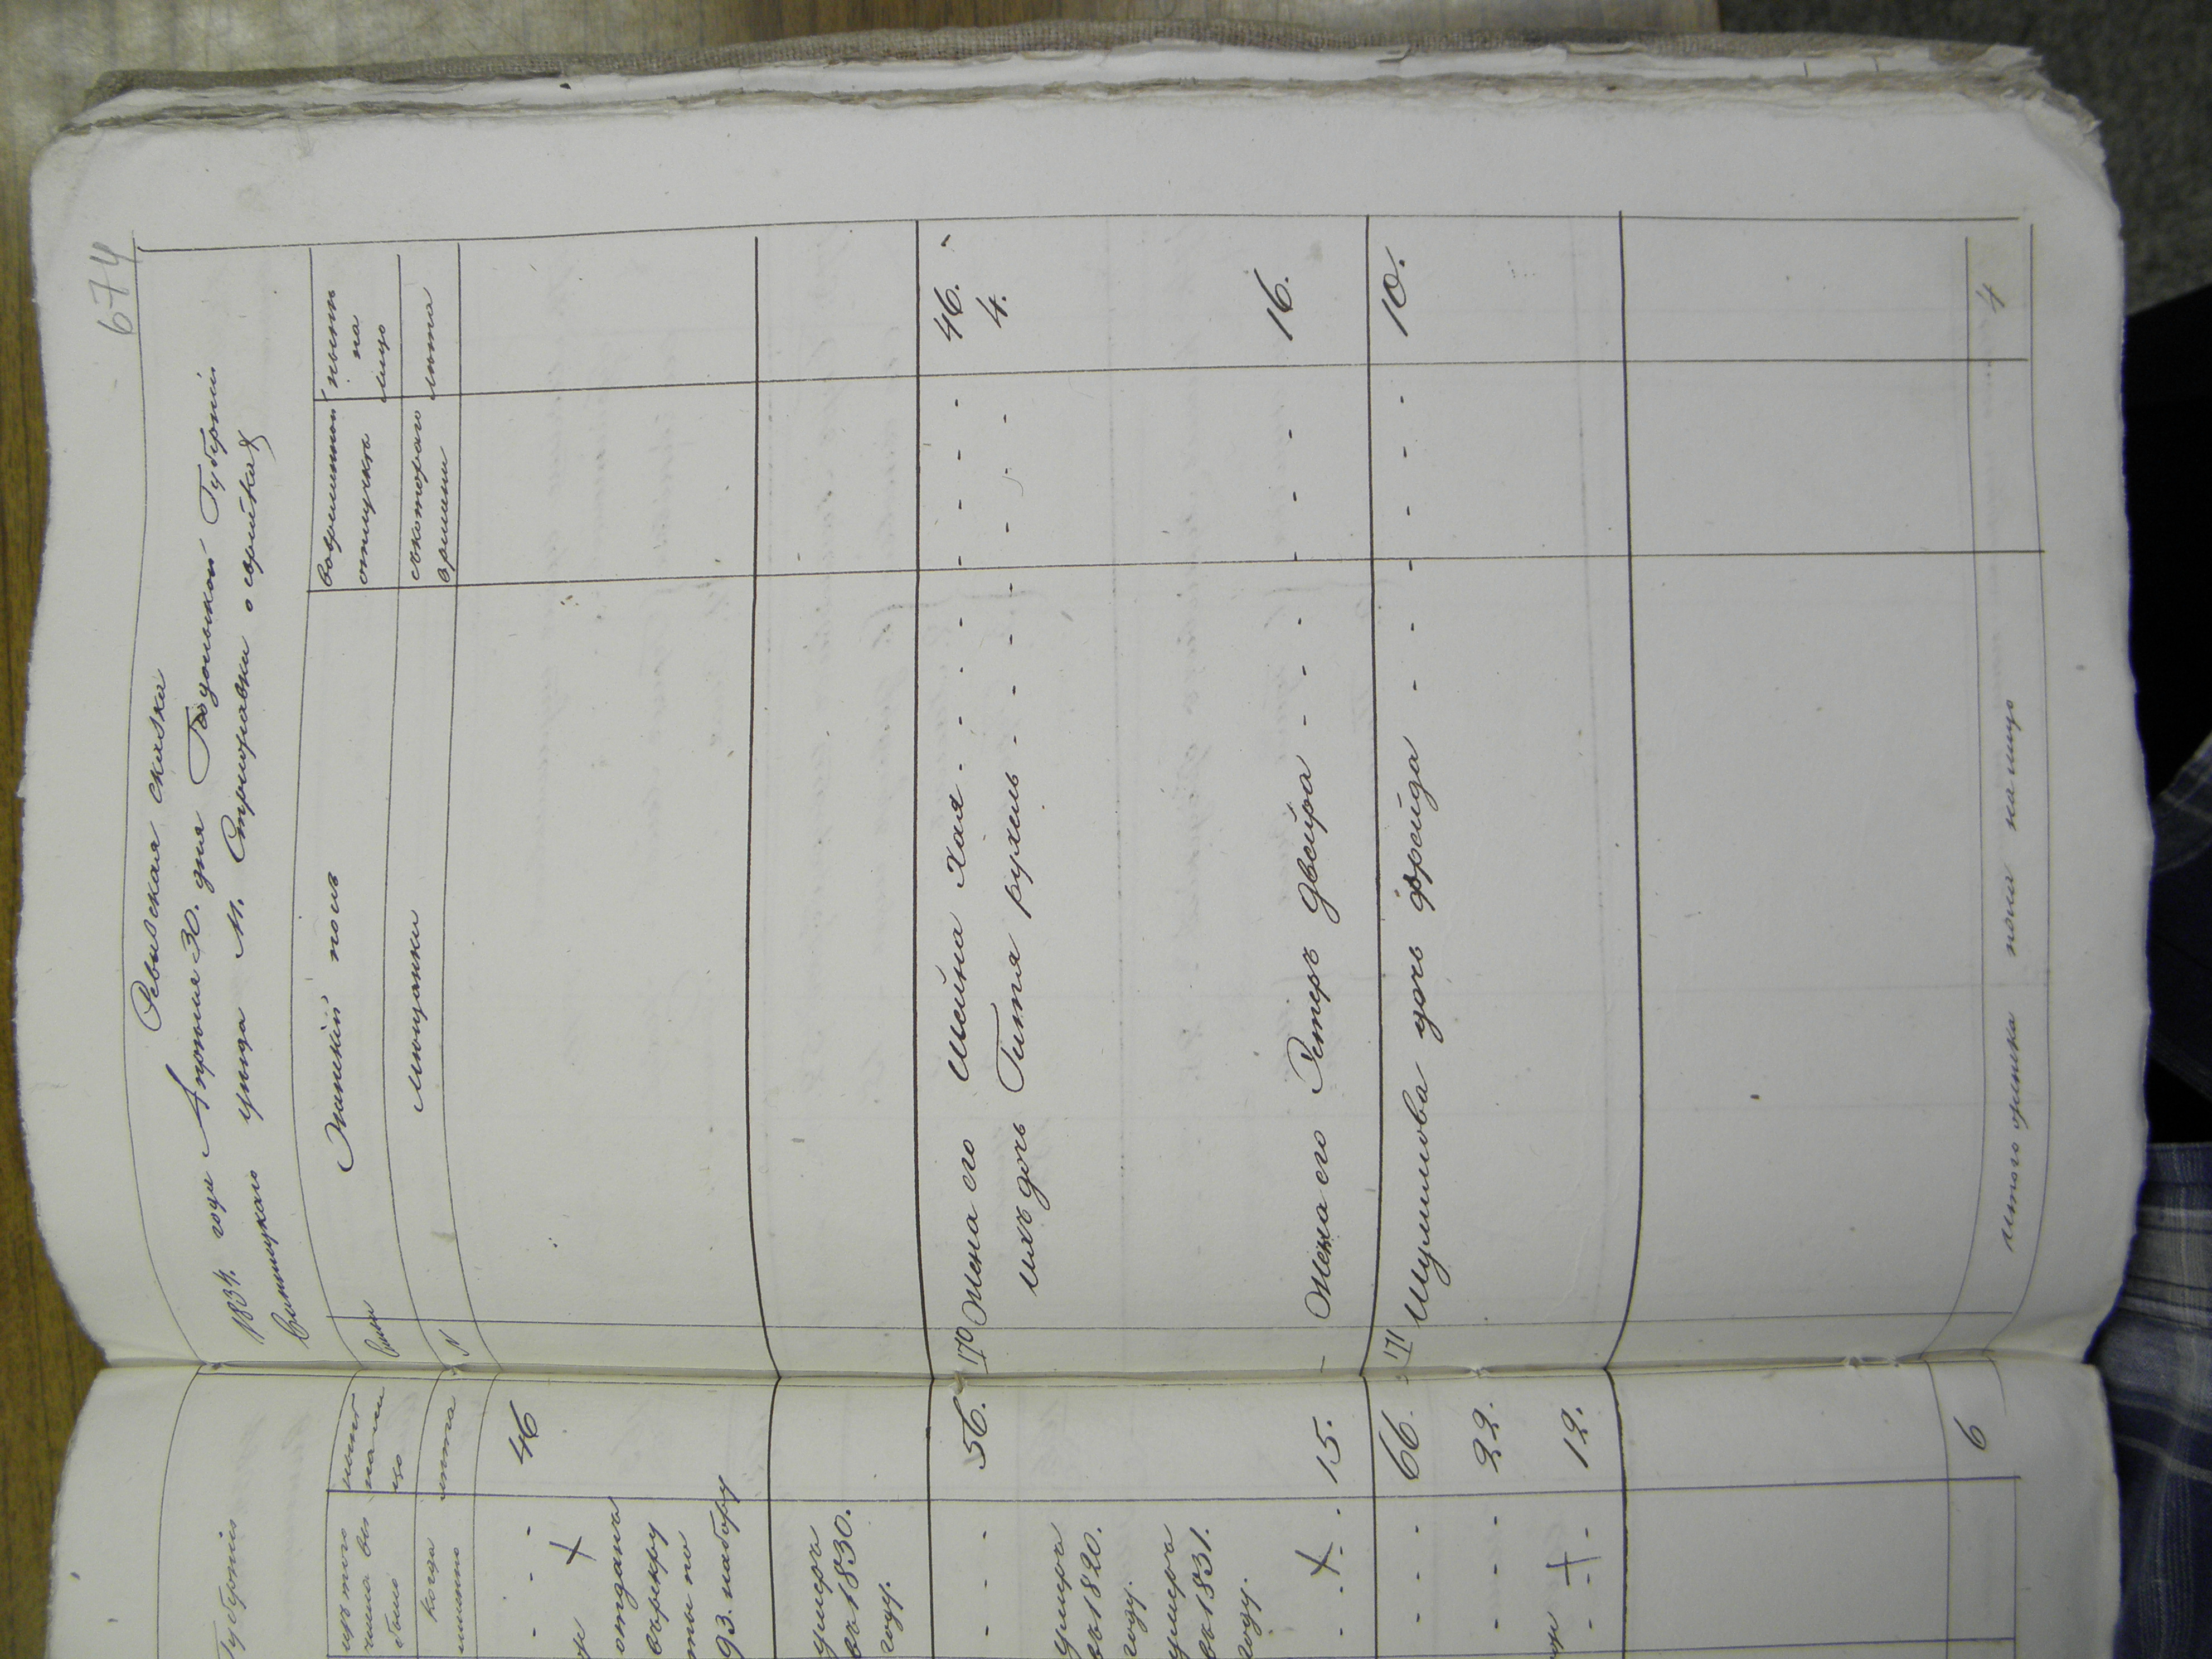 674
Ревизская сказка
1834. года Апреля 30. дня Подольской Губернии
Винницкого уезда М. Стрижавки о еврейках
Женский полъ
вовременной
отлучке
ныне
на
лицо
N
мещанки
скоторого
времени
лета
170 Жена его Шейна Хая - - - - - - - 46.
ихъ дочь Гитля рухель - - - - - - 4.
Жена его Эстеръ двейра - - - - - - 16.
171 Шулимова дочь фрейда - - - - - - 10.
итого женска пола налицо 4
Губернии
изъ того
числа вы
было
ныне
налицо
когда
именно
лета
- - - 46
отданъ
врекру
ты по
93. набору
умеръ
въ 1830.
году.
- - - 56.
умеръ
въ 1820.
году.
умеръ
въ 1831.
году.
- - - 15.
- - - 66.
- - - 22.
- - - 12.
6